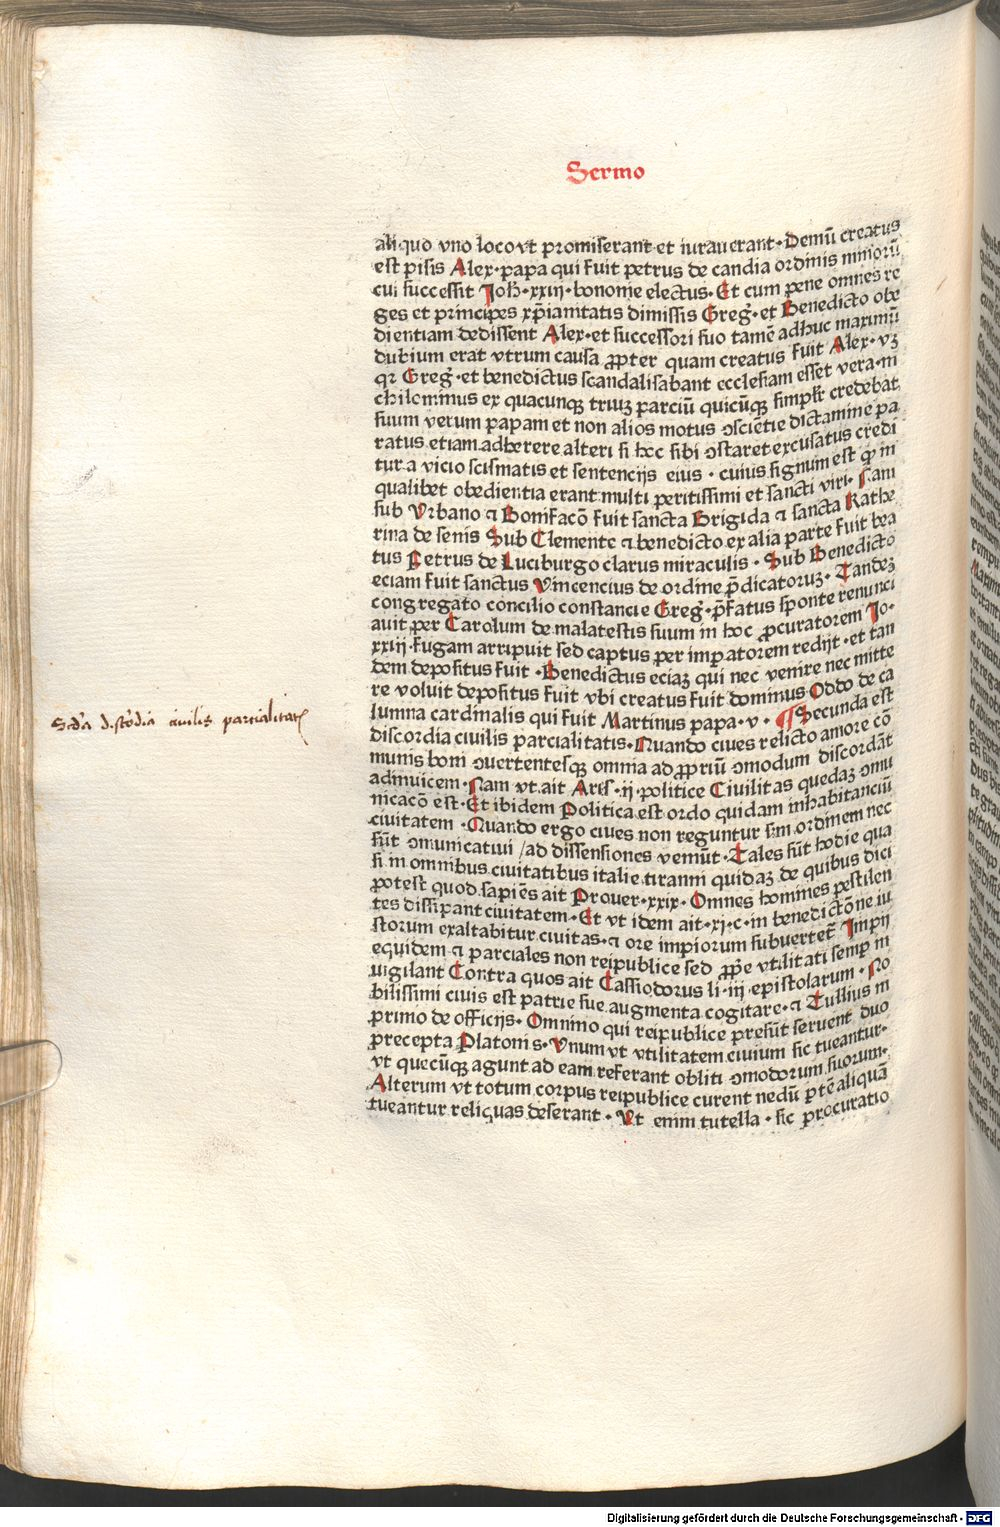 Sermo
aliquo vno loco vt promiserant et iurauerant · Demū creatus
est pisis Alex · papa qui fuit petrus de candia ordinis minorū
cui successit Joħ · xxiij · bononie electus · Et cum pene omnes re
ges et principes xp̄ianitatis dimissis Greg̃ · et Benedicto obe
dientiam dedissent Alex · et successori suo tamē adhuc maximū
dubium erat vtrum causa ꝓpter quam creatus fuit Alex · vꝫ
qꝛ Greg̃ · et benedictus scandalisabant ecclesiam esset vera · ni
chilominus ex quacunqꝫ triuꝫ parciū quicūqꝫ simplr̄ credebat
suum verum papam et non alios motus ↄsciētie dictamine pa
ratus etiam adherere alteri si hoc sibi ↄstaret excusatus credi
tur a vicio scismatis et sentencijs eius · cuius signum est ꝙ in
qualibet obedientia erant multi peritissimi et sancti viri · Nam
sub Vrbano ⁊ Bonifacō fuit sancta Brigida ⁊ sancta Kathe
rina de senis Sub Clemente ⁊ benedicto ex alia parte fuit bea
tus Petrus de Luciburgo clarus miraculis · Sub Benedicto
eciam fuit sanctus Vincencius de ordine p̄dicatoruꝫ · Tandeꝫ
congregato concilio constancie Greg̃ · p̄fatus sponte renunci
auit per Carolum de malatestis suum in hoc ꝓcuratorem Jo ·
xxiij · fugam arripuit sed captus per imꝑatorem redijt · et tan
dem depositus fuit · Benedictus eciaꝫ qui nec venire nec mitte
re voluit depositus fuit vbi creatus fuit dominus Oddo de ca
lumna cardinalis qui fuit Martinus papa · v · ¶ Secunda est
discordia ciuilis parcialitatis · Quando ciues relicto amore cō
munis boni ↄuertentesqꝫ omnia ad ꝓpriū ↄmodum discordāt
adinuicem · Nam vt ait Ares · ij · politice Ciuilitas quedaꝫ ↄmu
nicacō est · Et ibidem Politica est ordo quidam inhabitanciū
ciuitatem · Quando ergo ciues non reguntur s̄m ordinem nec
sūt ↄmunicatiui / ad dissensiones veniūt · Tales sūt hodie qua
si in omnibus ciuitatibus italie tiranni quidaꝫ de quibus dici
potest quod sapiēs ait Prouer · xxix · Omnes homines pestilen
tes dissipant ciuitatem · Et vt idem ait · xi · c · in benedictōne iu
storum exaltabitur ciuitas · ⁊ ore impiorum subuertet̄ Impij
equidem ⁊ parciales non reipublice sed ꝓpe vtilitati semꝑ in
uigilant Contra quos ait Cassiodorus li · iij · epistolarum · No
bilissimi ciuis est patrie sue augmenta cogitare · ⁊ Tullius in
primo de officijs · Omnino qui reipublice presūt seruent duo
precepta Platonis · Vnum vt vtilitatem ciuium sic tueantur ·
vt quecūqꝫ agunt ad eam referant obliti ↄmodorum suorum ·
Alterum vt totum corpus reipublice curent nedū ꝑtē aliquā
tueantur reliquas deserant · Vt enim tutella · sic procuratio
Scd'a discordia ciuilis parcialitatis
Digitalisierung gefördert durch die Deutsche Forschungsgemeinschaft - DFG